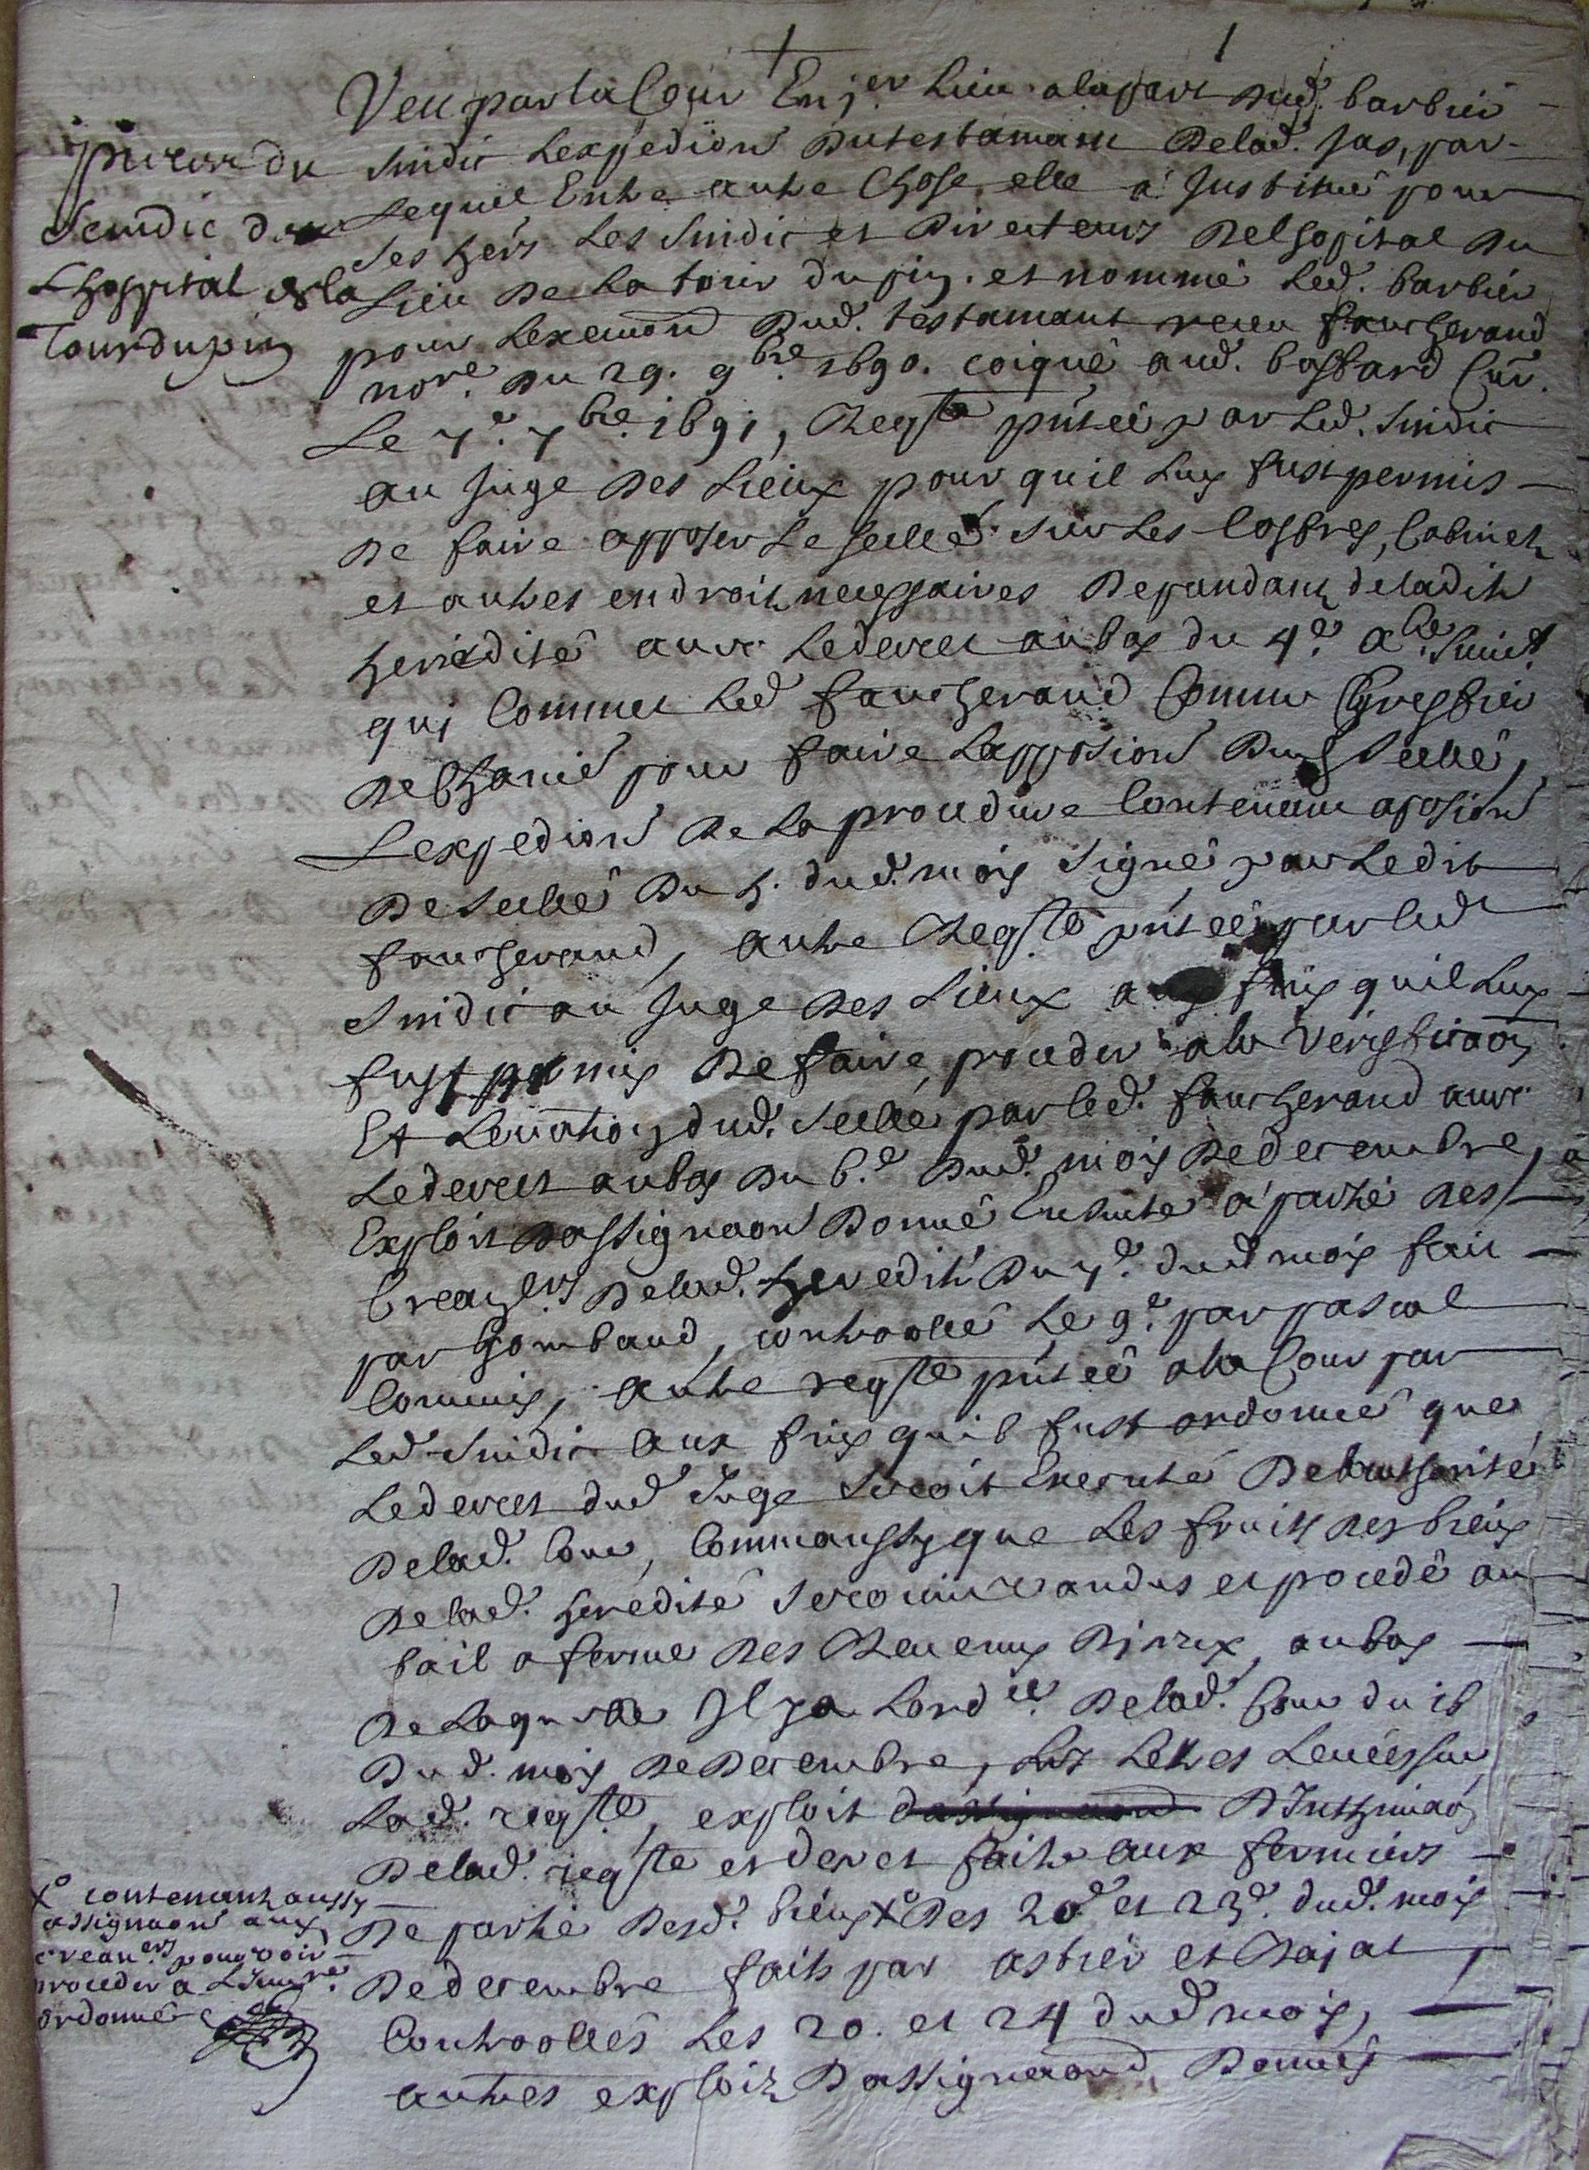 1
Veu par la Cour En 1er lieu a la part dud. barbier
sindic lexpedion du testamant de lad. Jas, par
lequel Entre autre Chose elle a Institué pour
ses hers les sindic et directeurs delhopital du
lieu de la tour du pin. et nommé led. barbier
pour lexecuon dud. testamant receu faucherand
nore. du 29. 9bre. 1690. coiqué aud. bossard Cur.
Le 7e. 7bre. 1691, Reqste pntée par led. sindic
au Juge des lieux pour quil luy fust permis
de faire apposer le sellé sur les Coffres, Cabinetz
et autres endroitz necessaires depandantz deladite
heredité avec le decret au bas du 4e. xbre suivt.
qui Commet led faucherand Comme Greffier
de pour faire lapposion dud sellé,
Lexpedion de la procedure Contenant aposion
de sellé du 5. dud. mois signé par ledit
faucherand, autre Reqste pntée par led
sindic au Juge des lieux aux fins quil luy
fust permis de faire proceder a la veriffication
Et levation dud. sellé par led. faucherand avec
le decret au bas du 6.e dud. mois de decembre,
Exploit dassignaon donné Ensuite a partie des
Creanrs delad. heredité du 7e. dud mois fait
par Gombaud, controollé le 9e. par pascal
Commis, autre reqste pntée a la Cour par
led sindic aux fins quil fust ordonné que
le decret dud Juge seroit Executé de lauthorité
delad. Cour, Comm'aussy que les fruits des biens
delad. heredité seroint vandus et procedé au
bail a ferme des Revenus Diceux, au bas
de laquelle Il y a lordce. delad. Cour du 16
dud. mois de decembre, les lettres levées sur
lad. reqste, exploit dassignaon DInthimaon
delad. reqste et decret faite aux fermiers
de partie desd. biens X des 20e et 23e. dud. mois
de decembre faits par astier et Rajat
Controollés les 20. et 24 dud mois,
autres exploitz Dassignaond Donnés
pour du
scindic de
Lhospital de la
Tourdupin
X contenant aussy
assignaon aux
creaners pour voir
proceder a
ordonné